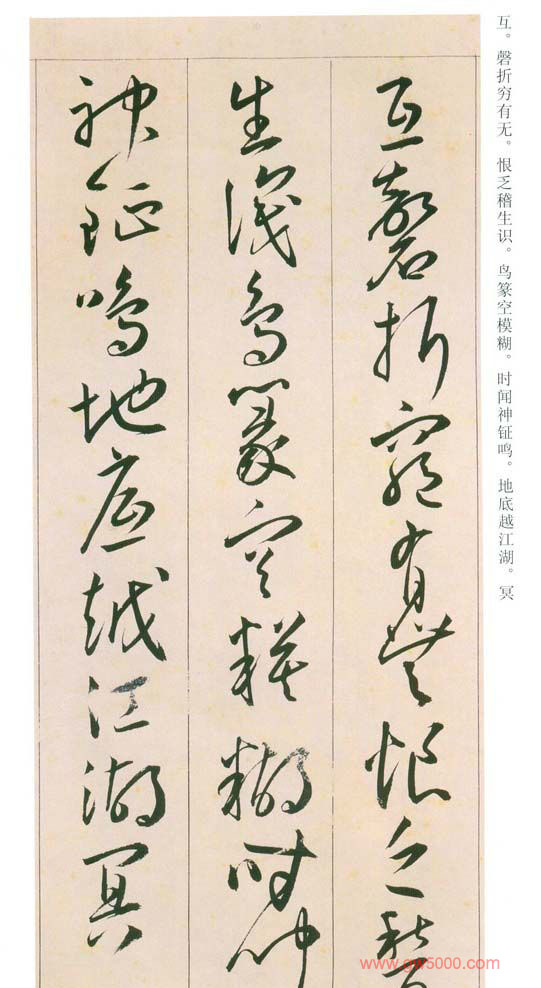 互。磬折穷有无。恨乏稽生识。鸟篆空模糊。时闻神钲鸣。地底越江湖。冥
互磬折窮有無恨乏稽
生識鳥篆空糢糊時聞
神鉦鳴地底越江湖冥
www.gw5000.com